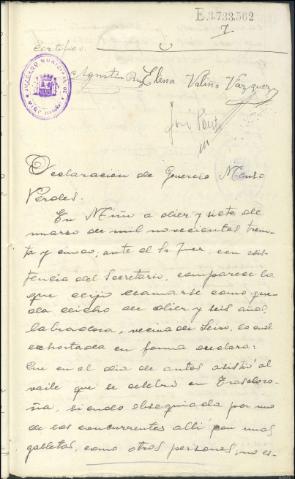 E.3.733.502
1
certifico.
Elena Valiño Vazquez
José
Declaracion de Generosa Manso
Perdes.
En Miño a diez y siete de
marzo de mil novecientos trein-
ta y cinco, ante el Sr Juez, con asis-
tencia del Secretario, comparece la
que dijo llamarse como que-
da dicho de diez y seis años,
labradora, vecina de Leiro, la cual
exhortada en forma declara:
Que en el dia de autos asistió al
baile que se celebró en
ña, siendo obsequiada por uno
de los concurrentes alli con unas
galletas, como otras personas, no es-